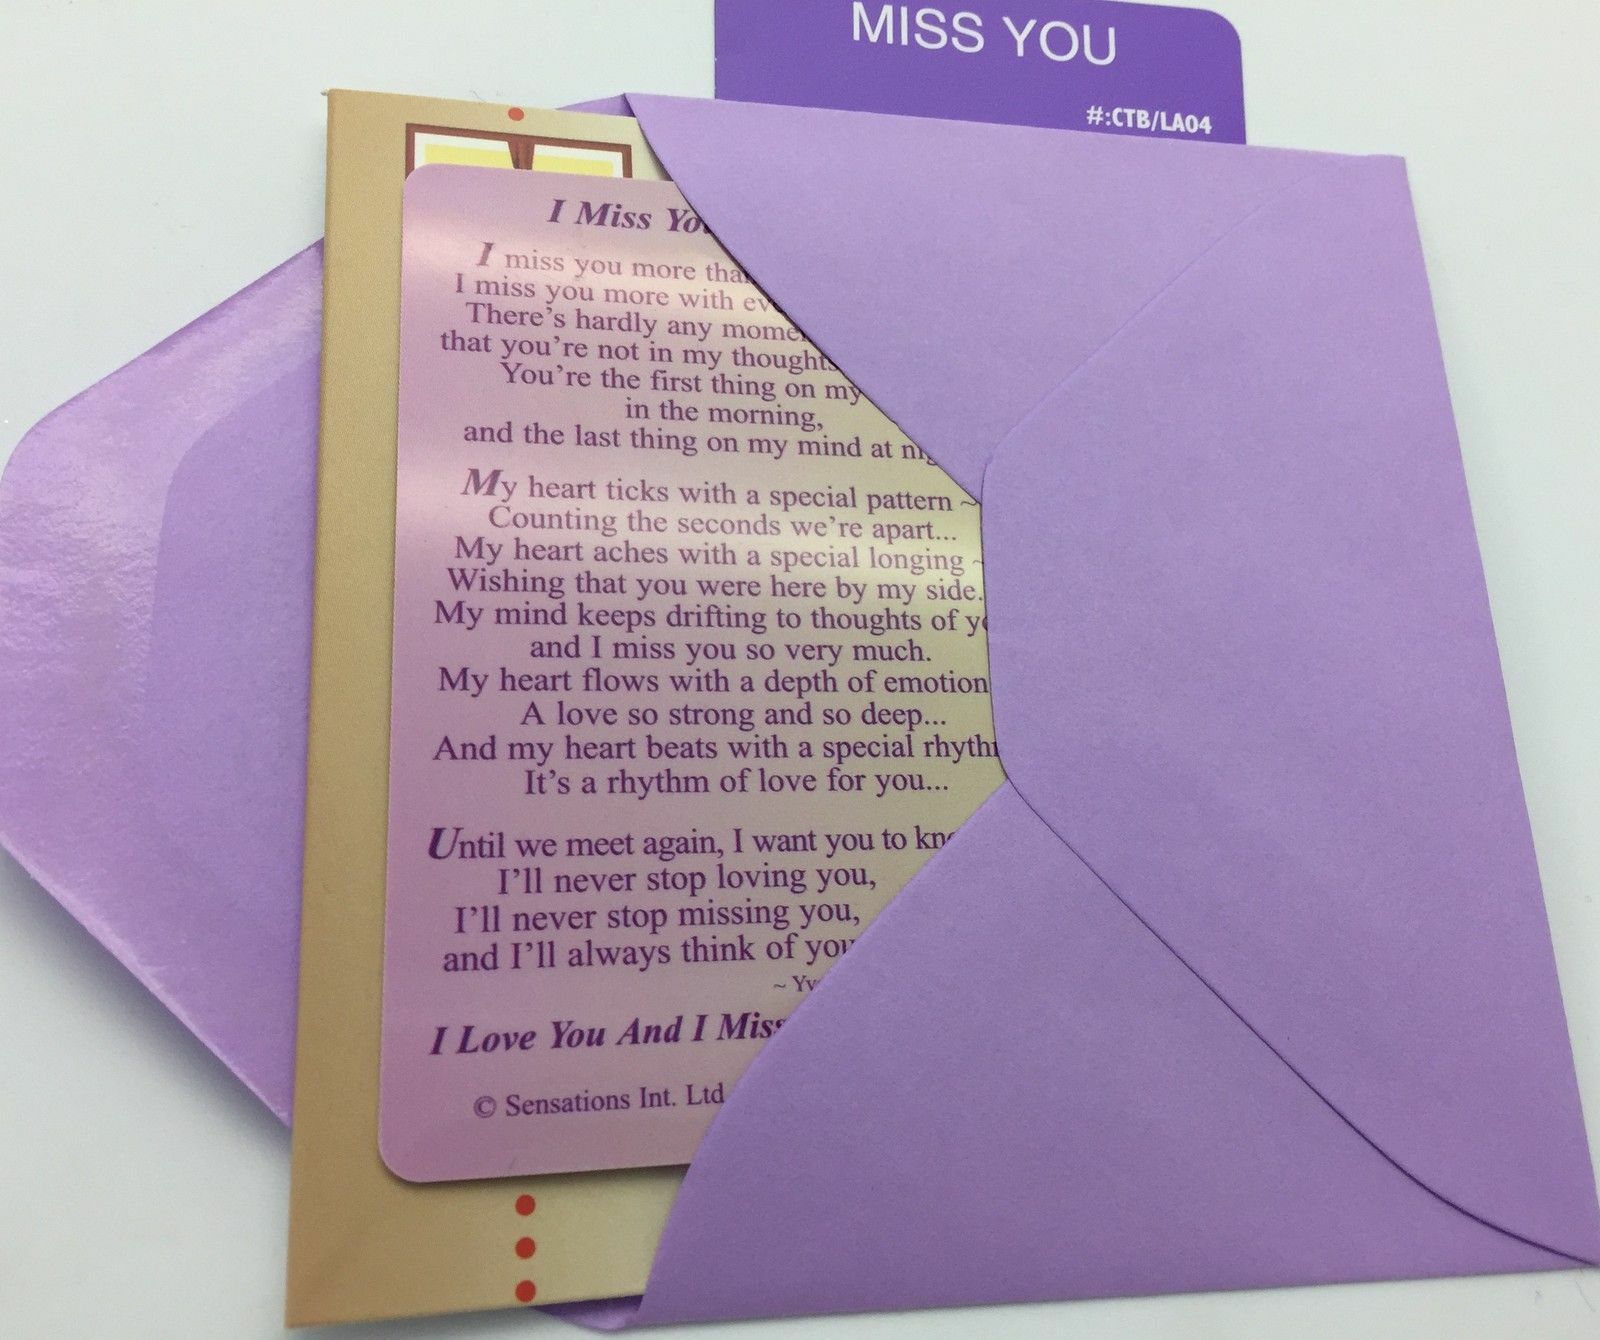 MISS YOU
#:CTB/LA04
I Miss
I miss you more
I miss you more with
There's hardly any
that you're not in my
You're the first thing on my
in the morning,
and the last thing on my mind at
My heart ticks with a special pattern ~
Counting the seconds we're apart...
My heart aches with a special longing ~
Wishing that you were here by my side.
My mind keeps drifting to thoughts of
and I miss you so very much.
My heart flows with a depth of emotion
A love so strong and so deep...
And my heart beats with a special
It's a rhythm of love for you...
Until we meet again, I want you to
I'll never stop loving you,
I'll never stop missing you,
and I'll always think of you
~
I Love You And I Miss
© Sensations Int. Ltd